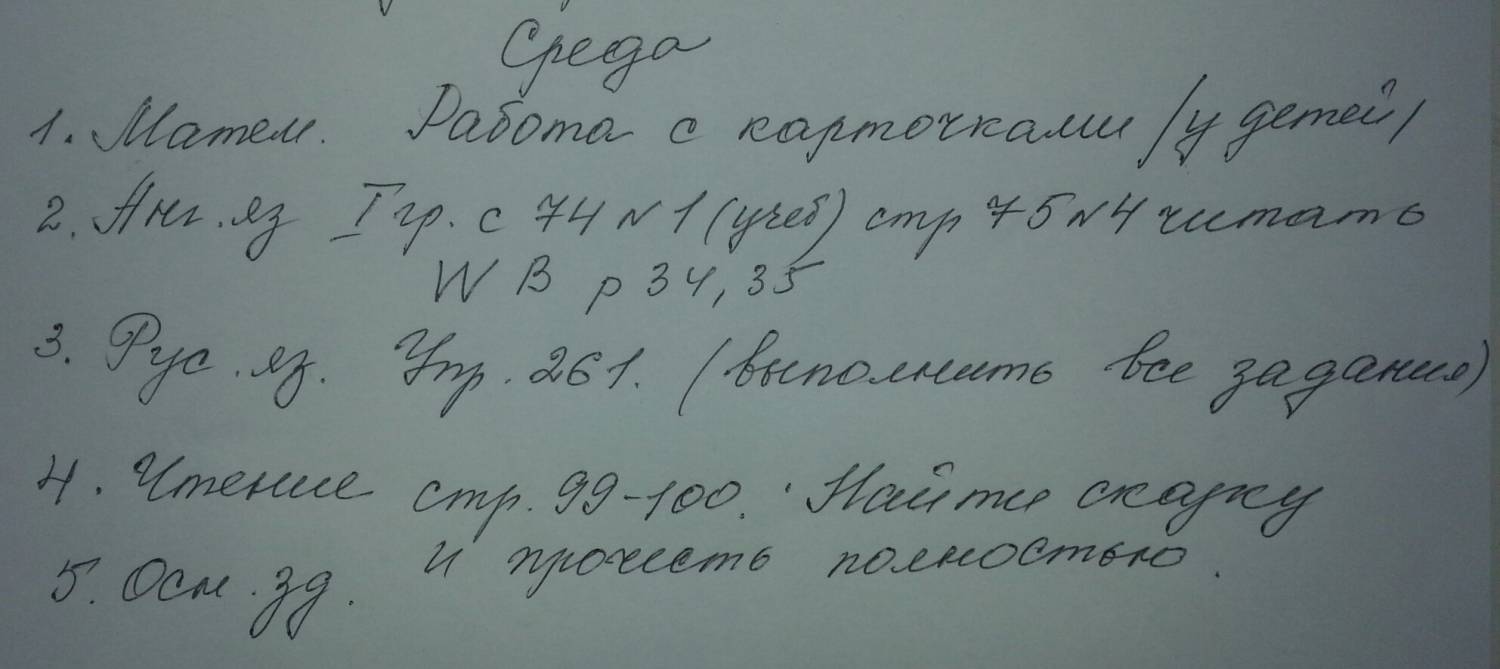 Среда
1. Матем. Работа с карточками /у детей/
2. Анг. яз I гр. с 74 N 1 (учеб) стр 75 N 4 читать
W B p 34, 35
3. Рус. яз. Упр. 261. (выполнить все задания)
4. Чтение стр. 99-100. Найти сказку
и прочесть полностью.
5. Осн. зд.